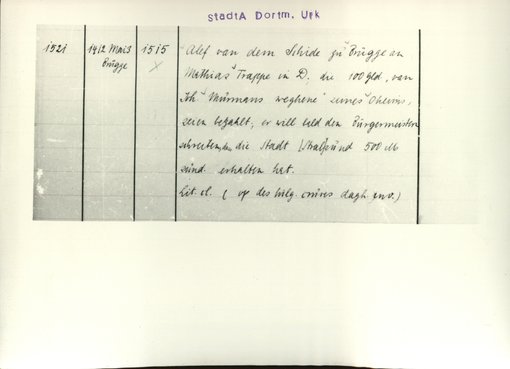 StadtA Dortm. Urk
1521
1412 Mai 3
Brügge
1515
"Alef van dem Schide zu" Brügge an
Mathias "Trappe in D. die 100 gld, van
Joh "Murmans weghene" seines Oheims,
seien bezahlt, er will bald den Bürgermeistern
schreiben, die Stadt Stralsund 500 M
sind erhalten hat.
Lit. cl. ( up des hilg. cruces dagh inv.)